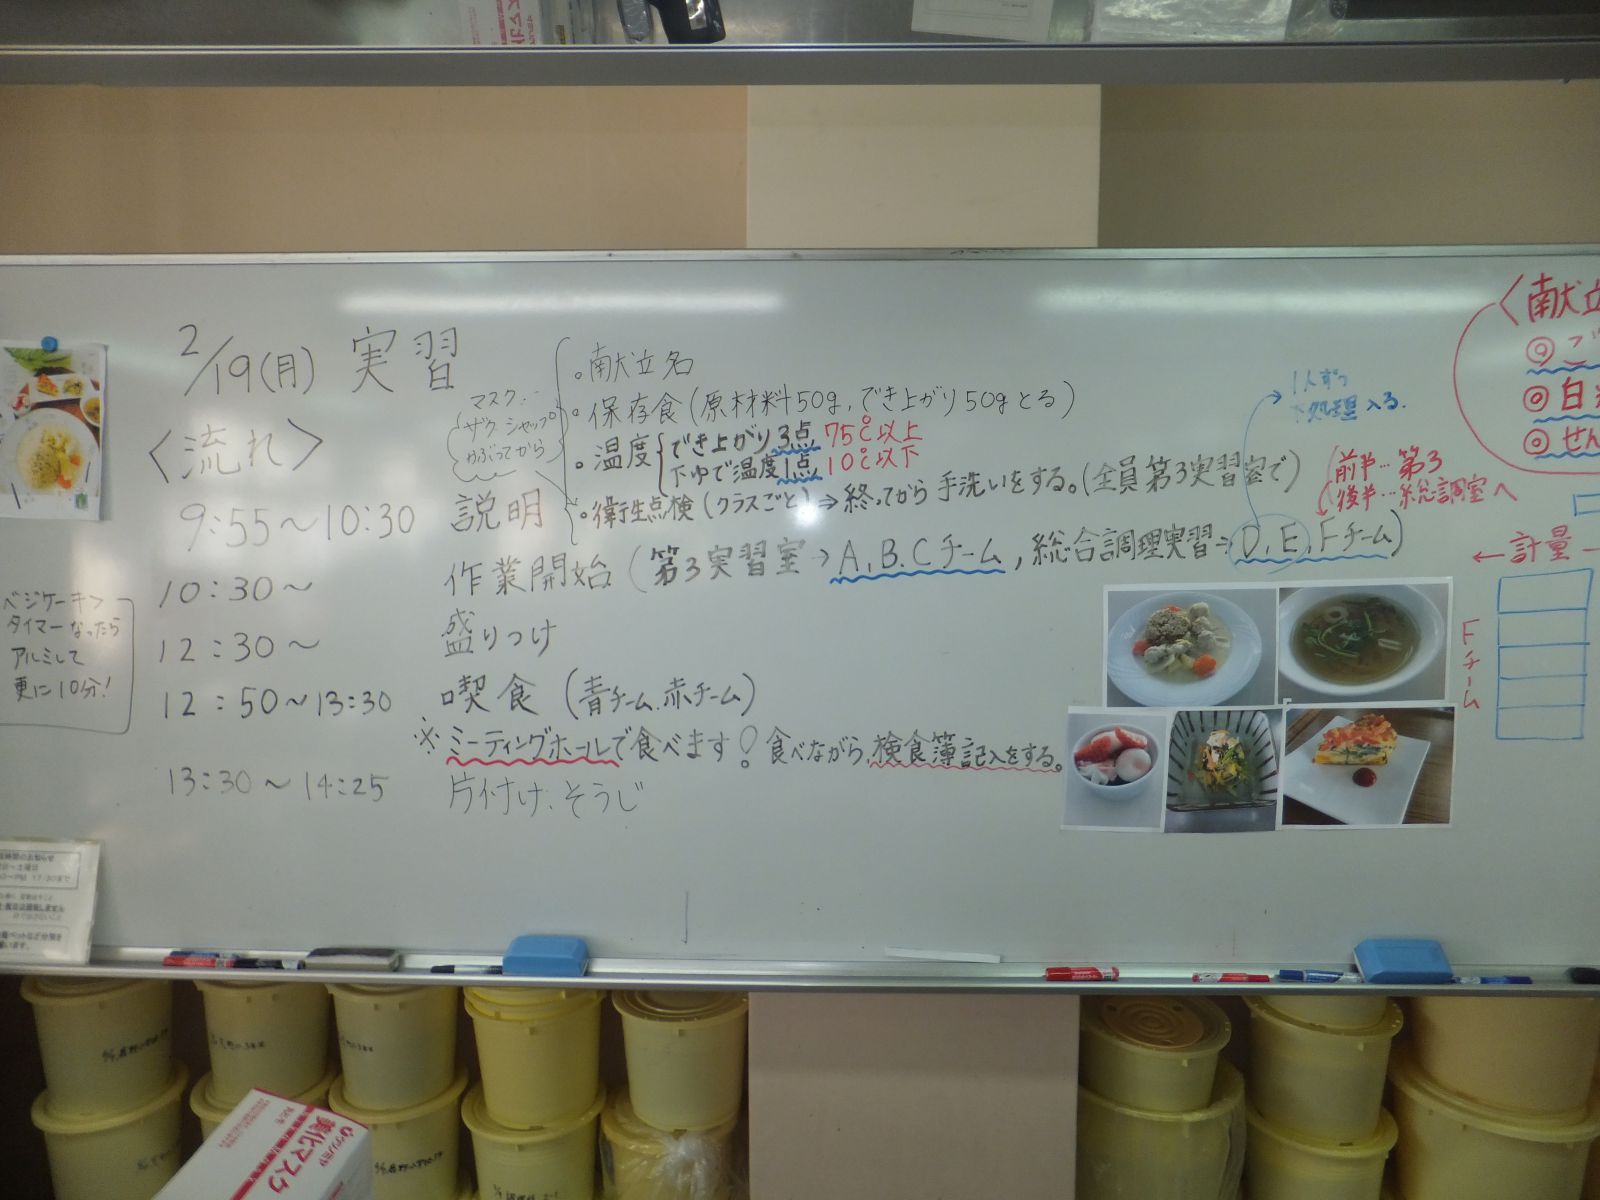 2/19(月) 実習
<流れ>
マスク…
ザク シャップ
かぶってから
。献立名
。保存食(原材料50g, でき上がり50gとる)
。温度 でき上がり3点 75℃以上
下ゆで温度1点 10℃以下
9:55〜10:30 説明 。衛生点検(クラスごと)⇒終ってから手洗いをする。(全員第3実習室で)
1人ずつ
下処理入る.
前半…第3
後半…総調室へ
10:30〜 作業開始(第3実習室→A,B,Cチーム,総合調理実習⇒D,E,Fチーム)
12:30〜 盛りつけ
12:50〜13:30 喫食(青チーム.赤チーム)
※ミーティングホールで食べます! 食べながら,検食簿記入をする。
13:30〜14:25 片付け.そうじ
ベジケーキ
タイマーなったら
アルミして
更に10分!
<献立
◎ご
◎白
◎せん
←計量
Fチーム
美化マスク